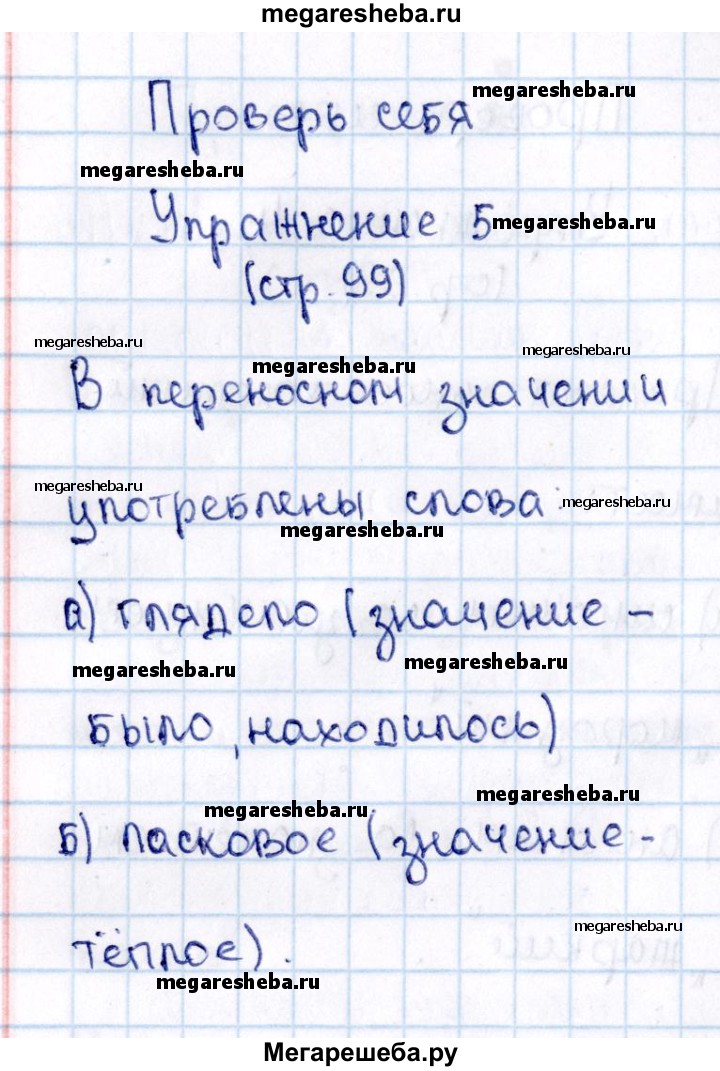 megaresheba.ru
megaresheba.ru
Проверь себя
megaresheba.ru
Упражнение 5
megaresheba.ru
(стр. 99)
megaresheba.ru
megaresheba.ru
megaresheba.ru
В переносном значении
megaresheba.ru
употреблены слова:
megaresheba.ru
megaresheba.ru
а) глядело (значение -
megaresheba.ru
megaresheba.ru
было, находилось)
megaresheba.ru
megaresheba.ru
б) ласковое (значение-
megaresheba.ru
тёплое).
megaresheba.ru
Мегарешеба.ру